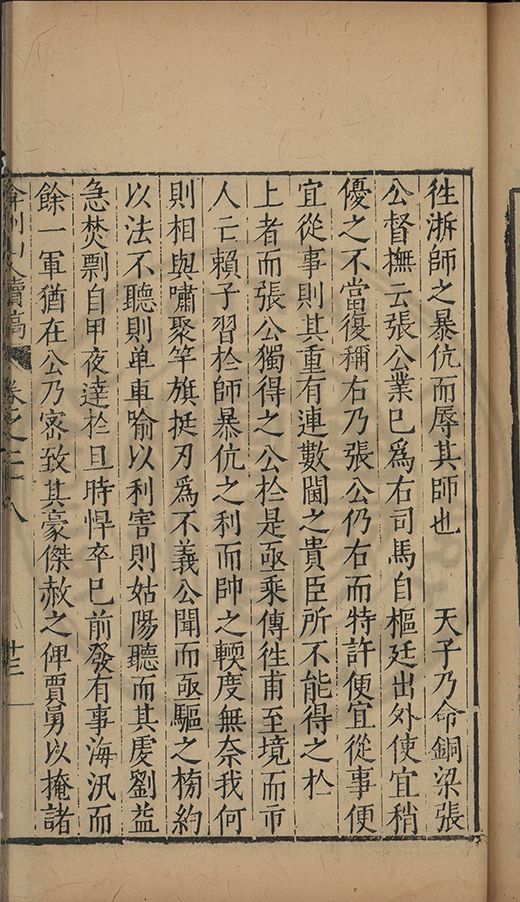 徃浙師之暴伉而辱其師也　　天子乃命銅梁張
公督撫云張公業已爲右司馬自樞廷出外使宜稍
優之不當復稱右乃張公仍右而特許便宜從事便
宜從事則其重有連數閫之貴臣所不能得之於
上者而張公獨得之公於是亟乘傳徃甫至境而市
人亡賴子習於師暴伉之利而帥之輭度無奈我何
則相與嘯聚竿旗挺刃爲不義公聞而亟驅之榜約
以法不聽則单車喻以利害則姑陽聽而其䖏劉益
急焚剽自甲夜達於旦時悍卒巳前發有事海汛而
餘一軍猶在公乃宻致其豪傑赦之俾賈勇以掩諸
弇州山人續稿 卷之二十八 廿三